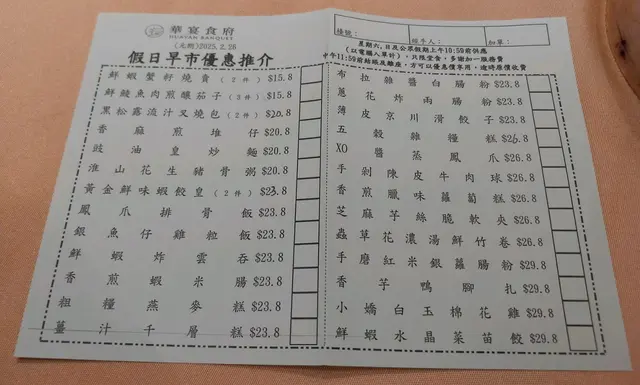 華宴食府
HUAYAN BANQUET
(元朗)2025.2.26
假日早市優惠推介
檯號: 經手人: 加單:
星期六,日及公眾假期上午10:59前供應
(以電腦入單計),只限堂食,多謝加一服務費
中午11:59前結賬及離座,方可以優惠價享用,逾時原價收費
鮮蝦蟹籽燒賣(2件) $15.8
鮮鯪魚肉煎釀茄子(3件) $15.8
黑松露流汁叉燒包(2件) $20.8
香麻煎堆仔 $20.8
豉油皇炒麵 $20.8
淮山花生豬骨粥 $20.8
黃金鮮味蝦餃皇(2件) $23.8
鳳爪排骨飯 $23.8
銀魚仔雞粒飯 $23.8
鮮蝦炸雲吞 $23.8
香煎蝦米腸 $23.8
粗糧燕麥糕 $23.8
薑汁千層糕 $23.8
布拉雜醬白腸粉 $23.8
蔥花炸兩腸粉 $23.8
薄皮京川滑餃子 $23.8
五穀雜糧糕 $26.8
XO醬蒸鳳爪 $26.8
手剁陳皮牛肉球 $26.8
香煎臘味蘿蔔糕 $26.8
芝麻芋絲脆軟夾 $26.8
蟲草花濃湯鮮竹卷 $26.8
手磨紅米銀蘿腸粉 $29.8
香芋鴨腳扎 $29.8
小嬌白玉棉花雞 $29.8
鮮蝦水晶菜苗餃 $29.8